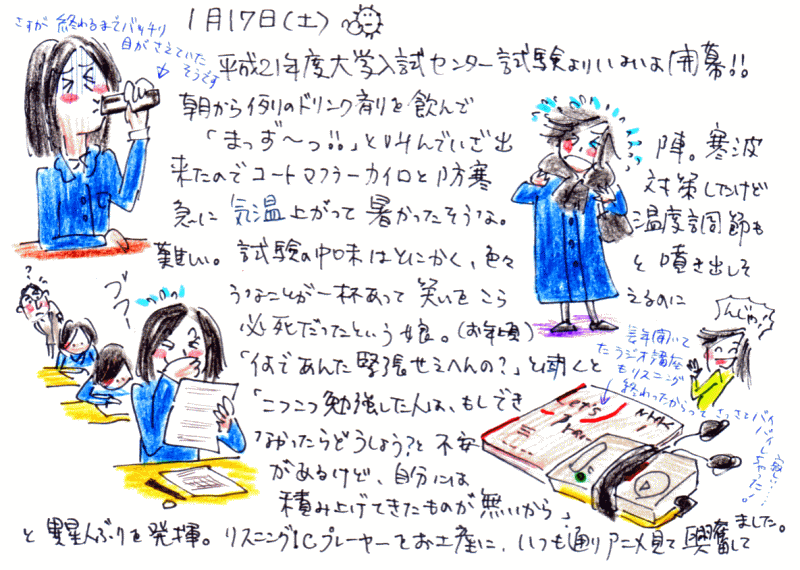 1月17日(土)
さすが終わるまでバッチリ
目がさえていた
そうです
平成21年度大学入試センター試験よりいよいよ開幕!!
朝から例のドリンク剤を飲んで
「まっず〜っ!!」と叫んでいざ出陣。寒波
来たのでコートマフラーカイロと防寒対策したけど
急に気温上がって暑かったそうな。温度調節も
難しい。試験の中味はとにかく、色々と噴き出しそ
うなことが一杯あって笑いをこらえるのに
必死だったという娘。(お年頃)
「何であんた緊張せえへんの?」と聞くと
「こつこつ勉強した人は、もしでき
なかったらどうしよう?と不安
があるけど、自分には
積み上げてきたものが無いから」
と異星人ぶりを発揮。リスニングICプレーヤーをお土産に、いつも通りアニメ見て興奮して
ました。
?
プフー
んじゃっ!
長年聞いて
たラジオ講座
もリスニング
終わったからってさっさとバイ
バイしちゃった!